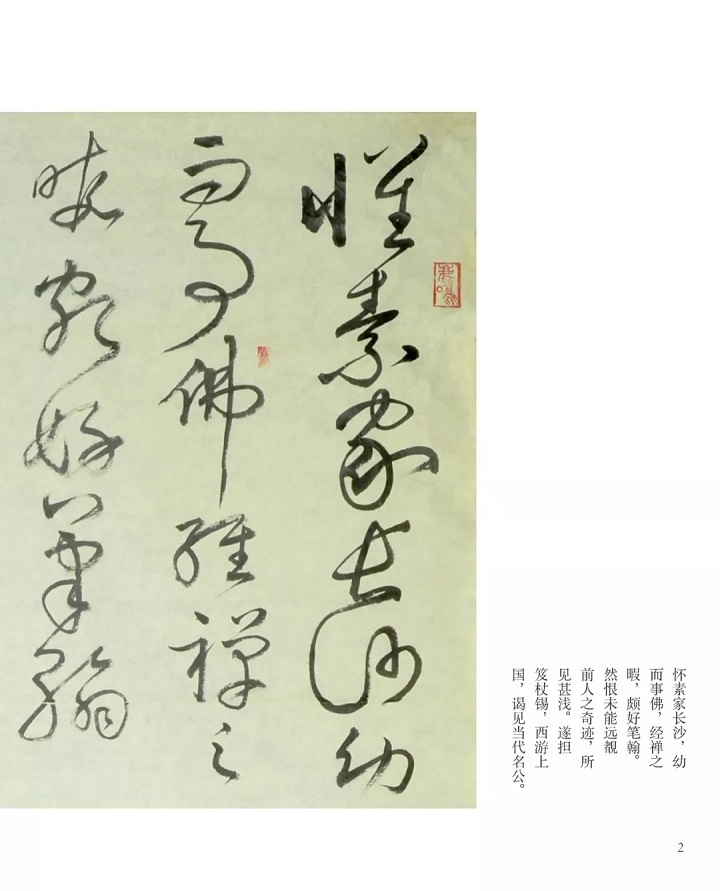 懷素家長沙幼
而事佛經禪之
暇頗好筆翰
鹿鳴
怀素家长沙，幼
而事佛，经禅之
暇，颇好笔翰。
然恨未能远覩
前人之奇迹，所
见甚浅。遂担
笈杖锡，西游上
国，谒见当代名公。
2